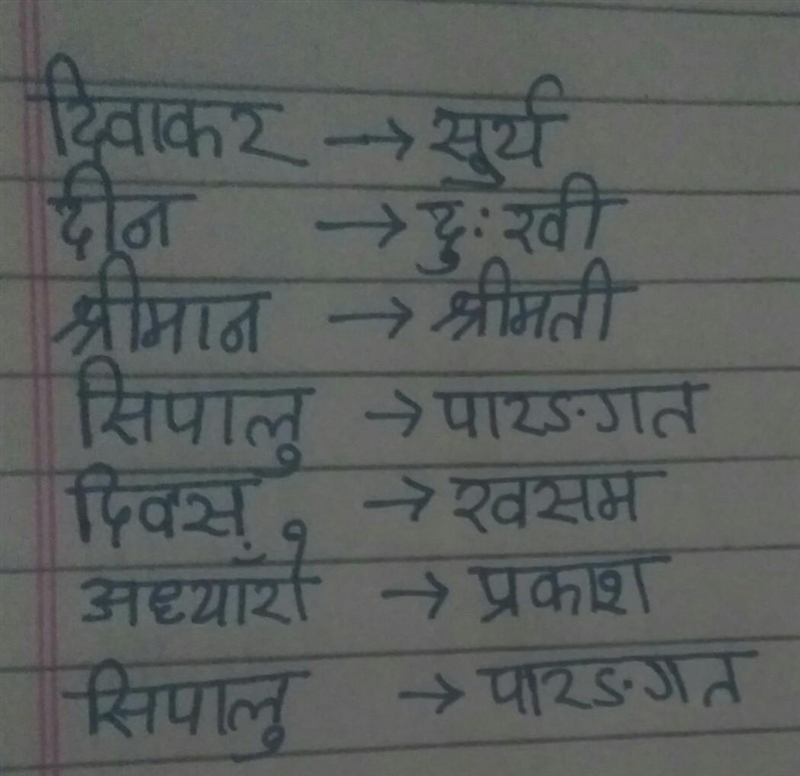 दिवाकर → सुर्य
दीन → दु:खी
श्रीमान → श्रीमती
सिपालु → पारङगत
दिवस → खसम
अध्याँरो → प्रकाश
सिपालु → पारङगत